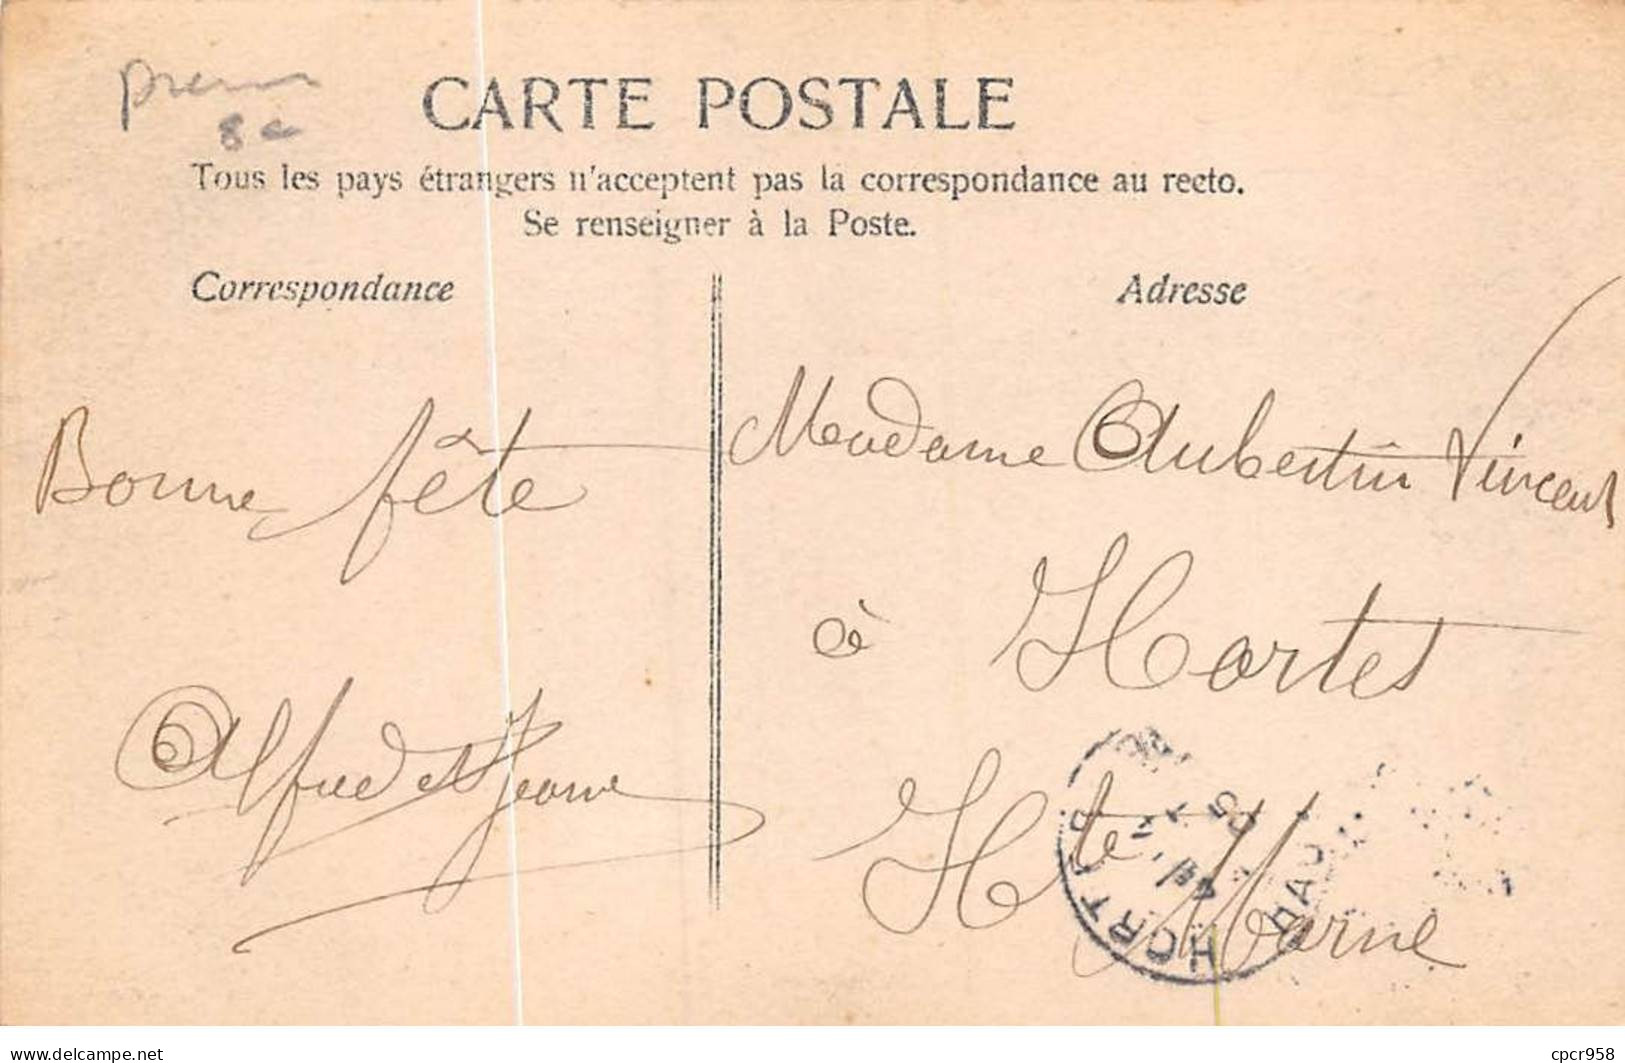 CARTE POSTALE
Tous les pays étrangers n'acceptent pas la correspondance au recto.
Se renseigner à la Poste.
Correspondance
Adresse
Bonne fête
Alfred et Jeanne
Madame Aubertin Vincent
à Hortes
Hte Marne
HORTES
HAU
www.delcampe.net
cpcr958